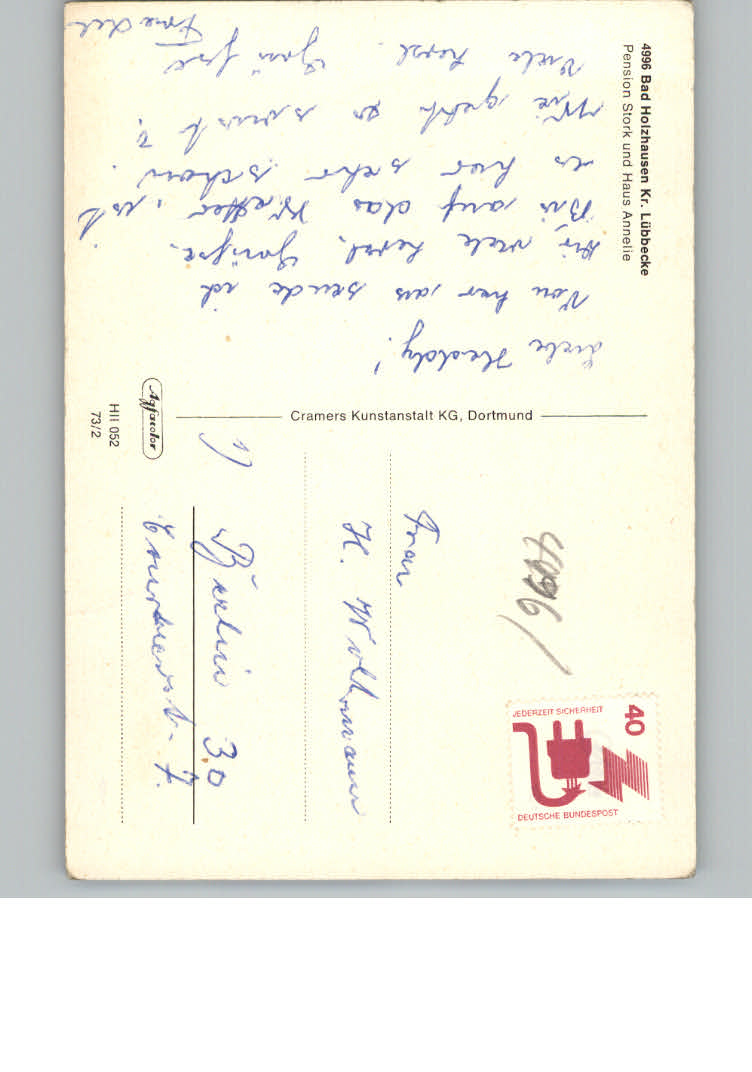 4996 Bad Holzhausen Kr. Lübbecke
Pension Stork und Haus Annelie
Liebe Heddy!
Von hier aus sende ich
Dir viele herzl. Grüße.
Bis auf das Wetter, ist
es hier sehr schön.
Wie geht es sonst?
Viele herzl. Grüße
Cramers Kunstanstalt KG, Dortmund
Agfacolor
HII 052
73/2
4996
40
JEDERZEIT SICHERHEIT
DEUTSCHE BUNDESPOST
Frau
H. Wilhmann
1) Berlin 30